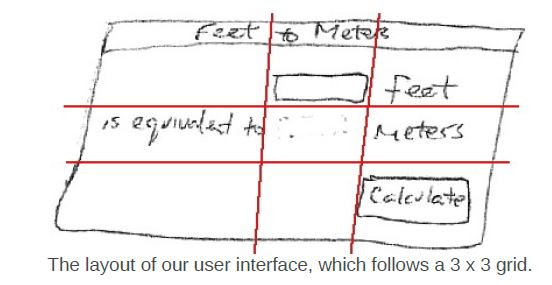 Feet to Meters
feet
is equivalent to
Meters
Calculate
The layout of our user interface, which follows a 3 x 3 grid.